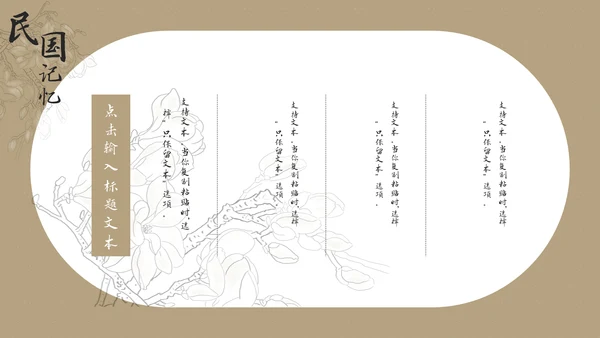 民国记忆
点击输入标题文本
支持文本,当你复制粘贴时,选
择"只保留文本"选项。
支持文本,当你复制粘贴时,选择
"只保留文本"选项。
支持文本,当你复制粘贴时,选择
"只保留文本"选项。
支持文本,当你复制粘贴时,选择
"只保留文本"选项。